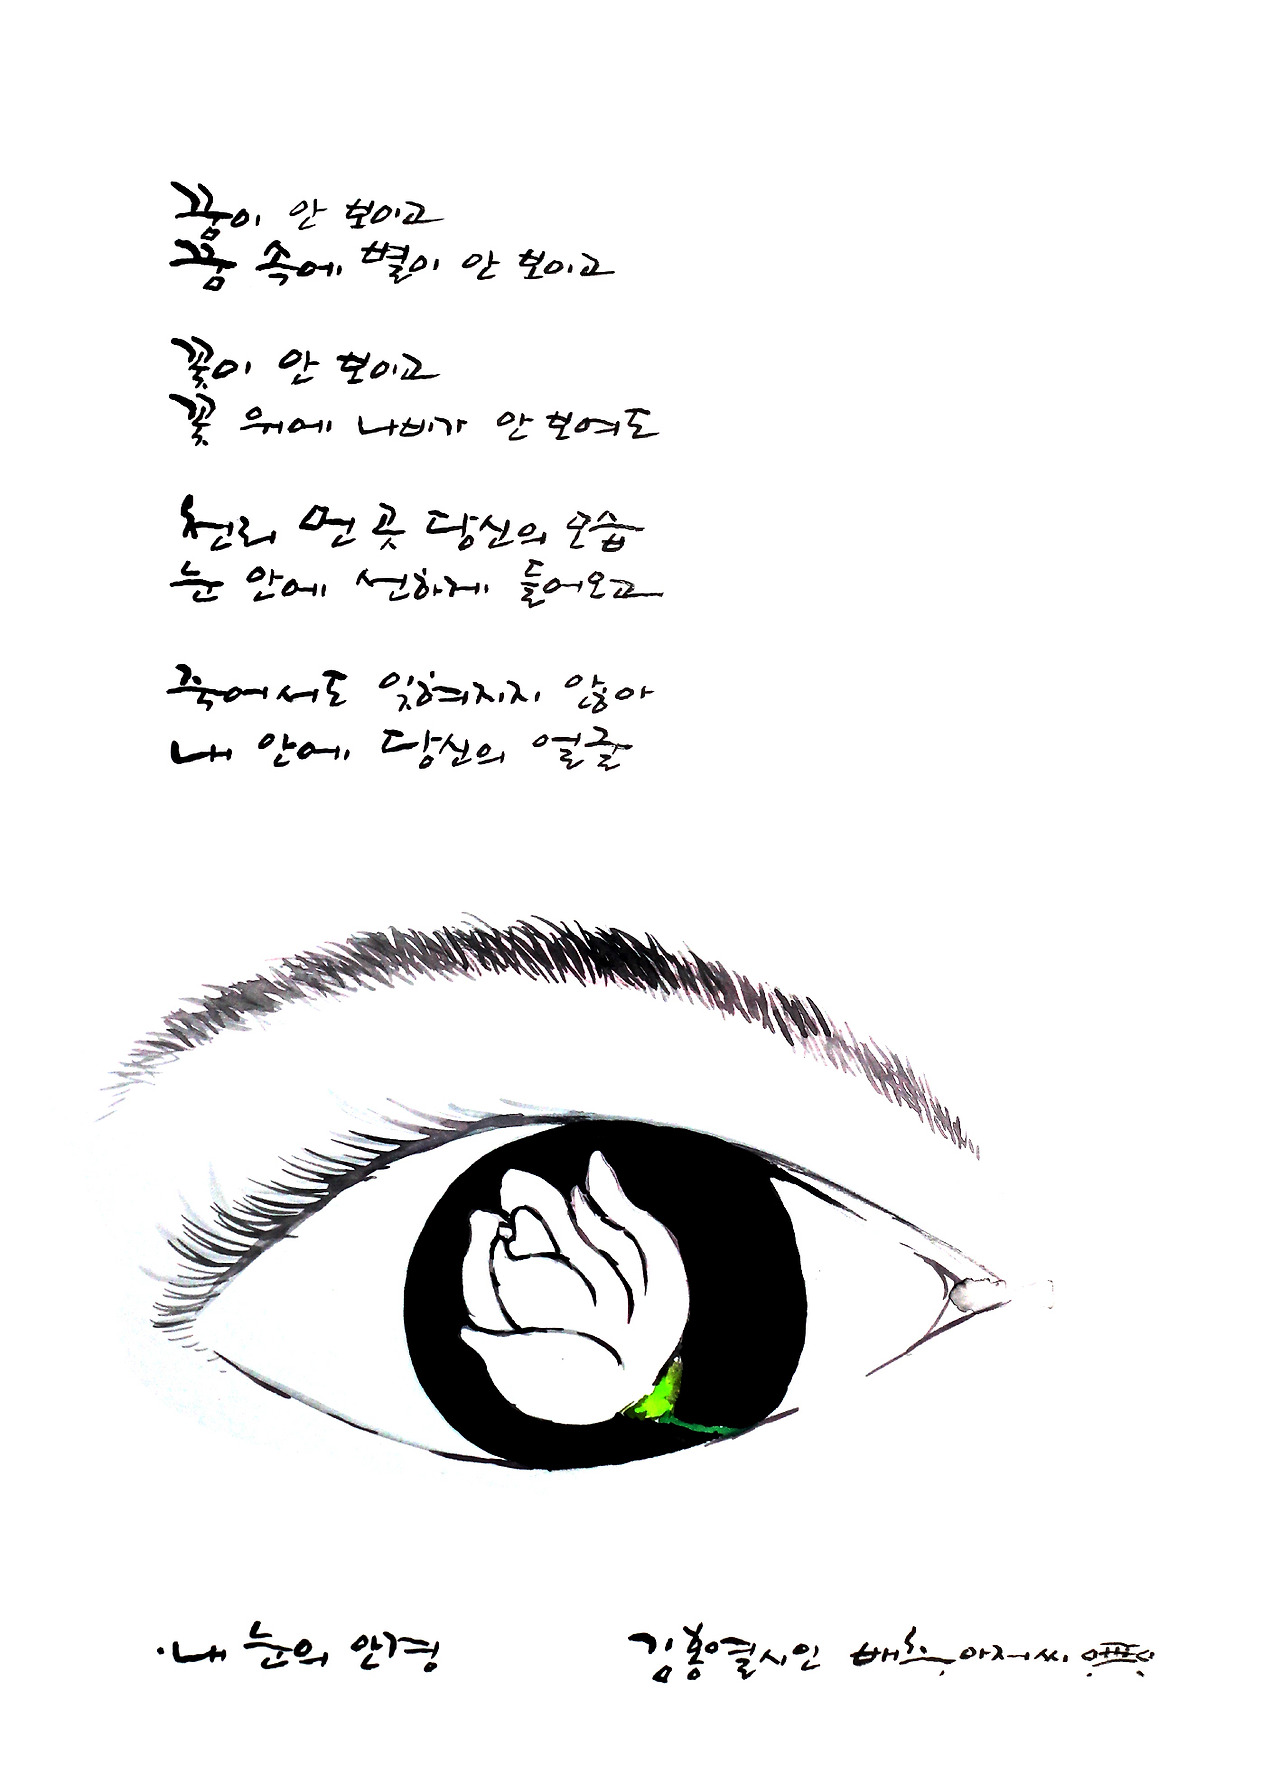 꿈이 안 보이고
꿈 속에 별이 안 보이고
꽃이 안 보이고
꽃 위에 나비가 안 보여도
천리 먼 곳 당신의 모습
눈 안에 선하게 들어오고
죽어서도 잊혀지지 않아
내 안에 당신의 얼굴
·내 눈의 안경
김홍열시인 배초아저씨